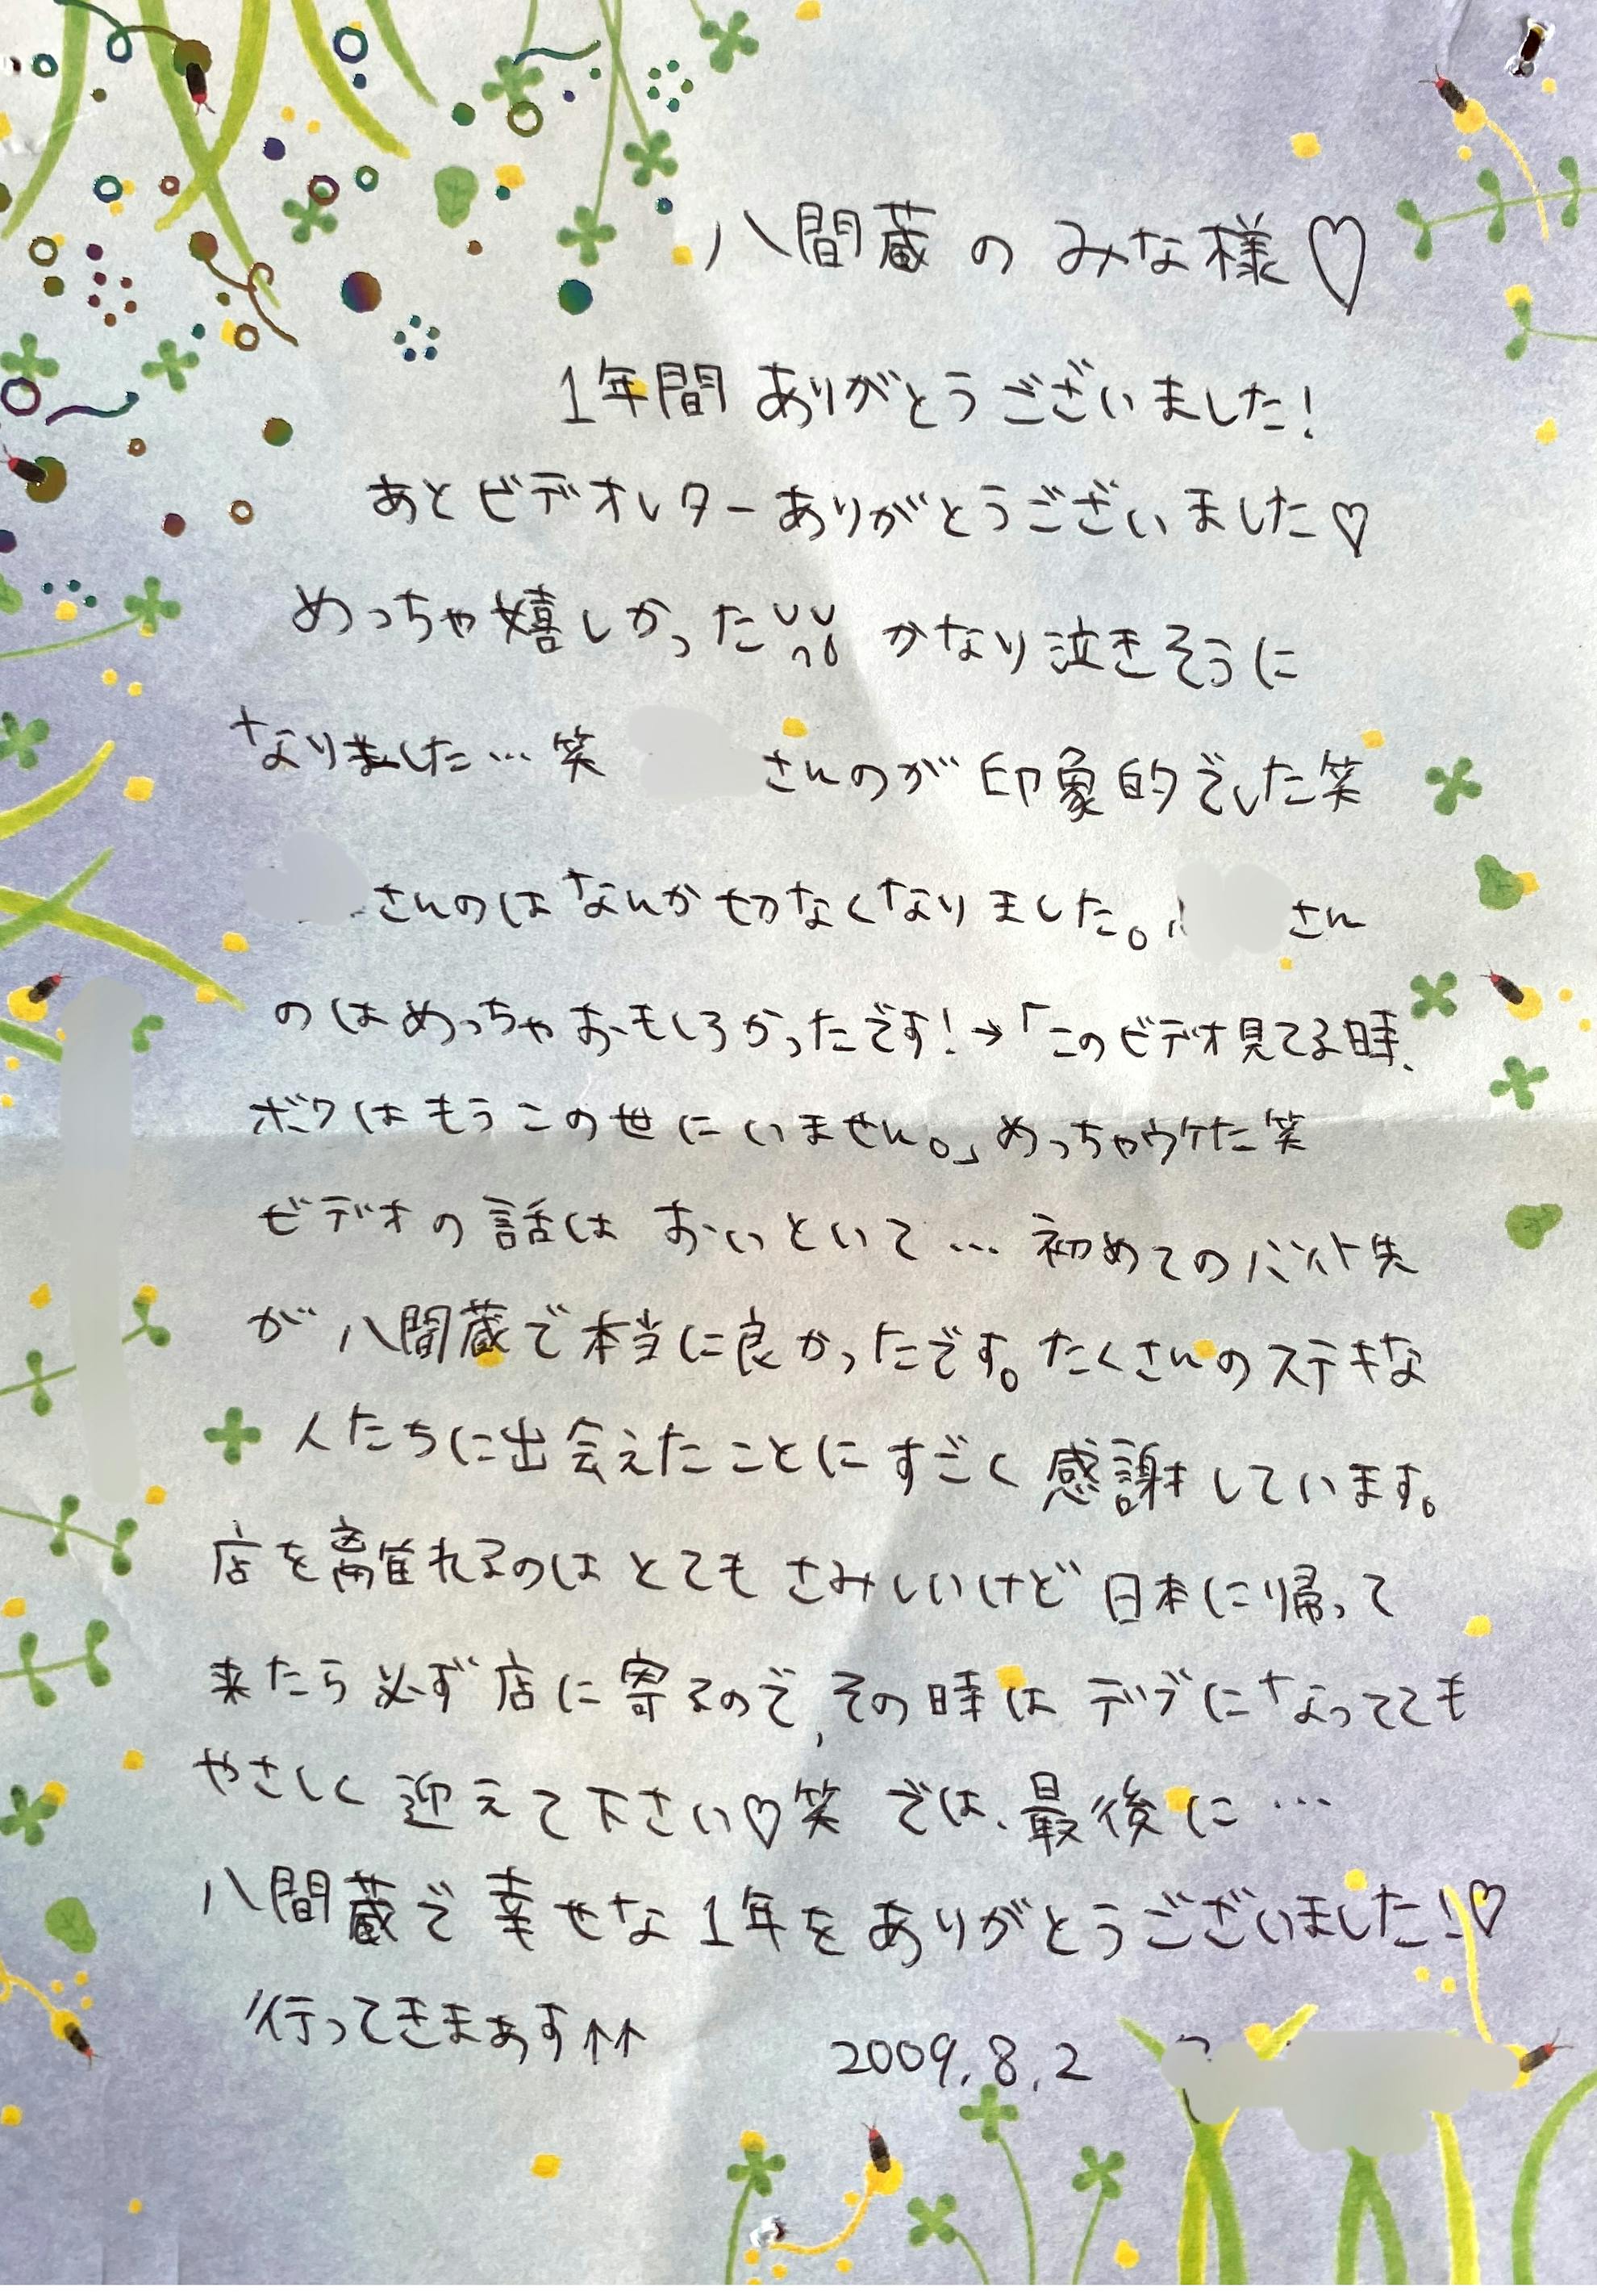 八間蔵のみな様♡
1年間ありがとうございました!
あとビデオレターありがとうございました♡
めっちゃ嬉しかった かなり泣きそうに
なりました…笑 さんのが印象的でした笑
さんのはなんか切なくなりました。 さん
のはめっちゃおもしろかったです!→「このビデオ見てる時、
ボクはもうこの世にいません。」めっちゃウケた笑
ビデオの話はおいといて…初めてのバイト先
が八間蔵で本当に良かったです。たくさんのステキな
人たちに出会えたことにすごく感謝しています。
店を離れるのはとてもさみしいけど日本に帰って
来たら必ず店に寄るので、その時はデブになってても
やさしく迎えて下さい♡笑 では、最後に…
八間蔵で幸せな1年をありがとうございました!♡
行ってきまぁす↑↑ 2009.8.2